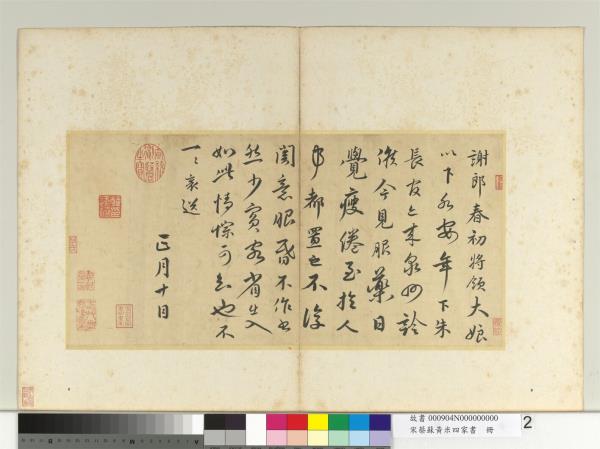 謝郎春初將領大娘
以下各安年下朱
長官亡來泉州診
候今見服藥日
覺瘦倦至於人
事都置之不復
關意眼昏不作書
然少賓客省出入
如此情悰可知也不
一一襄送
正月十日
故書 000904N000000000
宋蔡蘇黃米四家書 冊
2